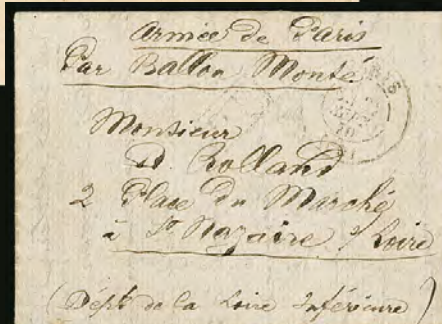 Armée de Paris
Par Ballon Monté
Monsieur
A. Rolland
2 Place du Marché
à St Nazaire s/Loire
(Dépt de la Loire Inférieure)